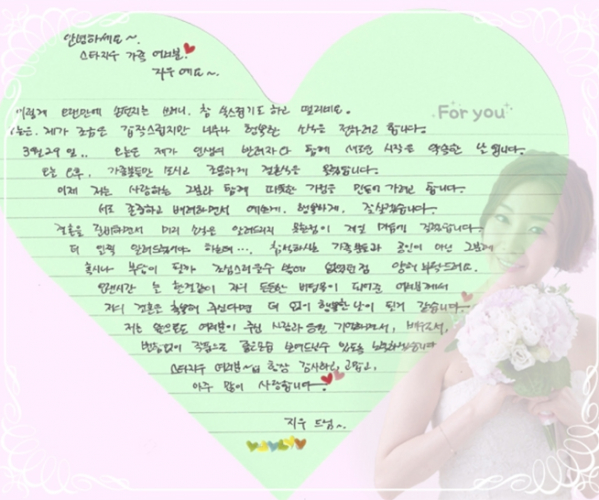 안녕하세요~.
스타지우 가족 여러분.
지우예요~.
이렇게 오랜만에 손편지를 쓰려니, 참 쑥스럽기도 하고 떨리네요.
For you
오늘은, 제가 조금은 갑작스럽지만 너무나 행복한 소식을 전하려고 합니다.
3월 29일.. 오늘은 제가 인생의 반려자와 함께 새로운 시작을 약속한 날입니다.
오늘 오후, 가족분들만 모시고 조용하게 결혼식을 올립니다.
이제 저는 사랑하는 그분과 함께 따뜻한 가정을 만들어 가려고 합니다.
서로 존중하고 배려하면서 예쁘게, 행복하게, 잘 살겠습니다.
결혼을 준비하면서 미리 소식을 알려드리지 못한점이 계속 마음에 걸렸습니다.
더 일찍 알려드렸어야 하는데..., 참석하시는 가족분들과 공인이 아닌 그분께
혹시나 부담이 될까 조심스러울수 밖에 없었던점 양해 부탁드려요.
오랜시간 늘 한결같이 저의 든든한 버팀목이 되어준 여러분께서
저의 결혼을 축복해 주신다면 더 없이 행복한 날이 될거 같습니다.
저는 앞으로도 여러분이 주신 사랑과 응원 기억하면서, 배우로서,
변함없이 작품으로 좋은모습 보여드릴수 있도록
스타지우 여러분~ 항상 감사하고, 고맙고,
아주 많이 사랑합니다.
지우 드림~.